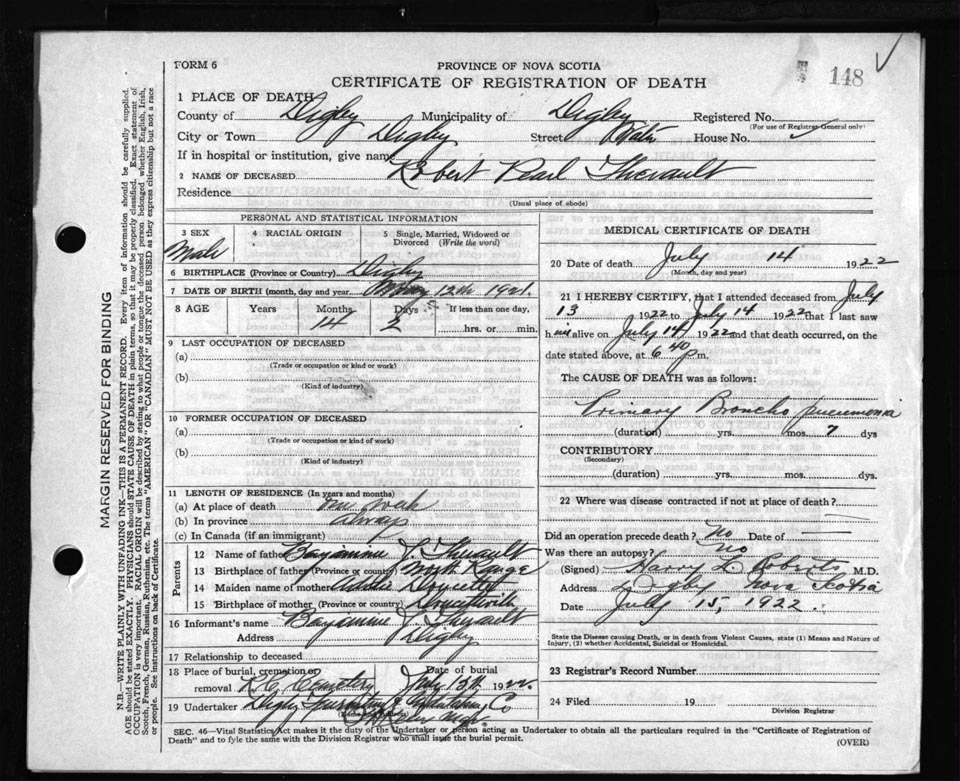 FORM 6
PROVINCE OF NOVA SCOTIA
CERTIFICATE OF REGISTRATION OF DEATH
148
1 PLACE OF DEATH
County of Digby Municipality of Digby Registered No.
(For use of Registrar-General only)
City or Town Digby Street Water House No.
If in hospital or institution, give name
2 NAME OF DECEASED Robert Pearl Theriault
Residence
(Usual place of abode)
PERSONAL AND STATISTICAL INFORMATION
3 SEX 4 RACIAL ORIGIN 5 Single, Married, Widowed or Divorced (Write the word)
Male
6 BIRTHPLACE (Province or Country) Digby
7 DATE OF BIRTH (month, day and year) May 12th 1921
8 AGE Years Months Days If less than one day,
14 2 hrs. or min.
9 LAST OCCUPATION OF DECEASED
(a)
(Trade or occupation or kind or work)
(b)
(Kind of industry)
10 FORMER OCCUPATION OF DECEASED
(a)
(Trade or occupation or kind of work)
(b)
(Kind of industry)
11 LENGTH OF RESIDENCE (In years and months)
(a) At place of death one week
(b) In province always
(c) In Canada (if an immigrant)
Parents
12 Name of father Benjamine J. Theriault
13 Birthplace of father (Province or country) North Range
14 Maiden name of mother Doucette
15 Birthplace of mother (Province or country) Doucetteville
16 Informant's name Benjamine J. Theriault
Address Digby
17 Relationship to deceased
18 Place of burial, cremation or removal R.C. Cemetery Date of burial July 15th 1922
19 Undertaker Digby Furniture & Undertaking Co
Mgr
MEDICAL CERTIFICATE OF DEATH
20 Date of death July 14 1922
(Month, day and year)
21 I HEREBY CERTIFY, that I attended deceased from July
13 1922 to July 14 1922 that I last saw
him alive on July 14 1922 and that death occurred, on the
date stated above, at 6 40 p m.
The CAUSE OF DEATH was as follows:
Primary Broncho pneumonia
(duration) yrs. mos. 7 dys
CONTRIBUTORY
(Secondary)
(duration) yrs. mos. dys.
22 Where was disease contracted if not at place of death?
Did an operation precede death? no Date of —
Was there an autopsy? no
(Signed) Harry L Roberts M.D.
Address Digby Nova Scotia
Date July 15, 1922.
State the Disease causing Death, or in death from Violent Causes, state (1) Means and Nature of
Injury, (2) whether Accidental, Suicidal or Homicidal.
23 Registrar's Record Number
24 Filed 19
Division Registrar
SEC. 46—Vital Statistics Act makes it the duty of the Undertaker or person acting as Undertaker to obtain all the particulars required in the "Certificate of Registration of
Death" and to fyle the same with the Division Registrar who shall issue the burial permit.
(OVER)
MARGIN RESERVED FOR BINDING
N.B.—WRITE PLAINLY WITH UNFADING INK—THIS IS A PERMANENT RECORD. Every item of information should be carefully supplied.
AGE should be stated EXACTLY. PHYSICIANS should STATE CAUSE OF DEATH in plain terms, so that it may be properly classified. Exact statement of
OCCUPATION is very important. RACIAL ORIGIN will be described by stating to what people or tongue the deceased person belonged whether English, Irish,
Scotch, French, German, Russian, Ruthenian, etc. The terms "AMERICAN" OR "CANADIAN" MUST NOT BE USED as they express citizenship but not a race
or people. See instructions on back of Certificate.